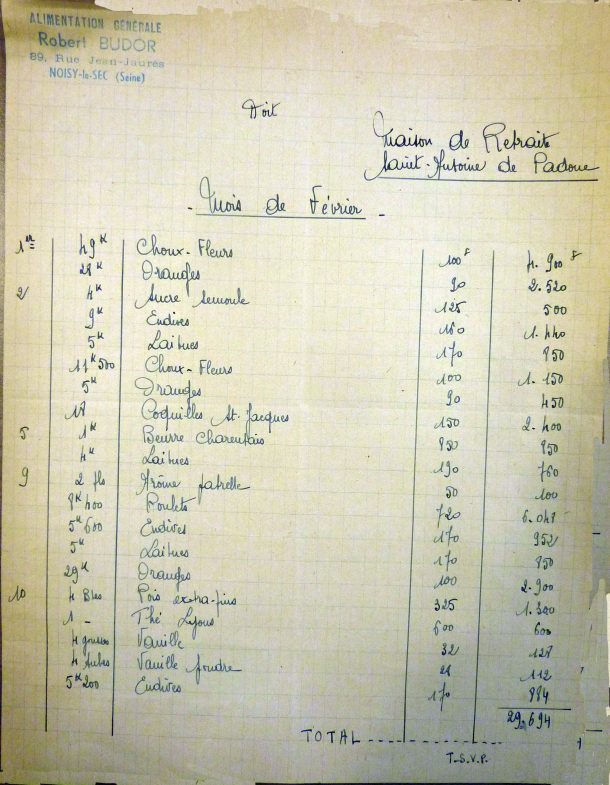 ALIMENTATION GÉNÉRALE
Robert BUDOR
89, Rue Jean-Jaurès
NOISY-le-SEC (Seine)
Doit
Maison de Retraite
Saint-Antoine de Padoue
- Mois de Février -
1er 49K Choux-Fleurs 100F 4.900F
28K Oranges 90 2.520
2 4K Sucre semoule 125 500
9K Endives 160 1.440
5K Laitues 170 850
11K500 Choux-Fleurs 100 1.150
5K Oranges 90 450
16 Coquilles St. Jacques 150 2.400
5 1K Beurre Charentais 850 850
4K Laitues 190 760
9 2 fls Arôme patrelle 50 100
8K400 Poulets 720 6.048
5K600 Endives 170 952
5K Laitues 170 850
29K Oranges 100 2.900
10 4 Btes Pois extra-fins 325 1.300
1 - Thé Lyons 600 600
4 gousses Vanille 32 128
4 tubes Vanille poudre 28 112
5K200 Endives 170 884
29.694
TOTAL
T.S.V.P.